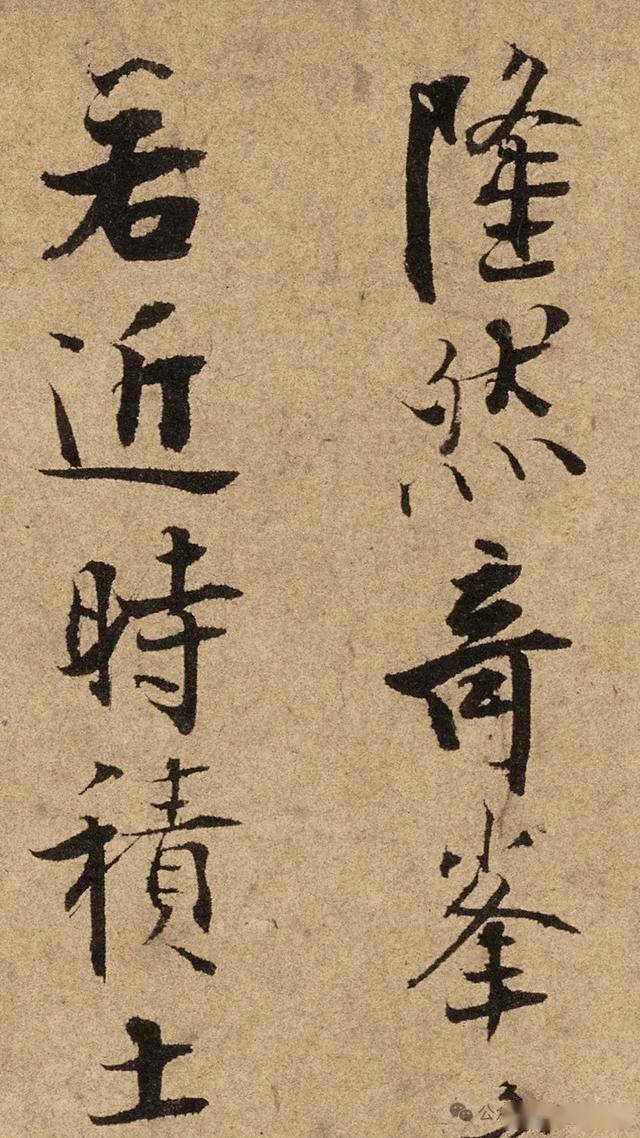 隆然奇峯
若近時積土
公